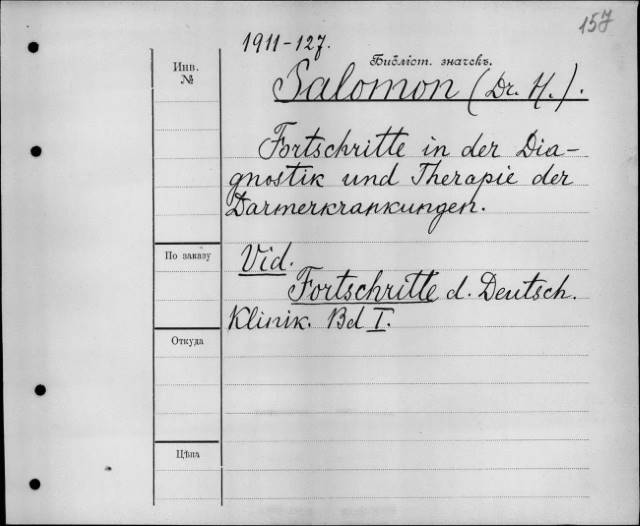 157
1911-127.
Инв.
№
Бібліот. значекъ.
Salomon (Dr. H.).
Fortschritte in der Dia-
gnostik und Therapie der
Darmerkrankungen.
По заказу
Vid.
Fortschritte d. Deutsch.
Klinik. Bd I.
Откуда
Цѣна